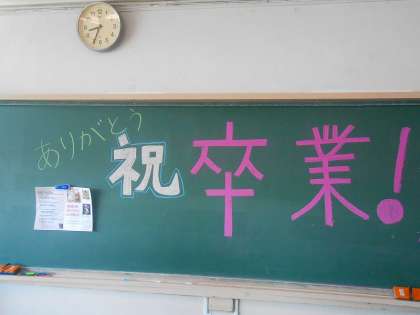 ありがとう
祝 卒業!